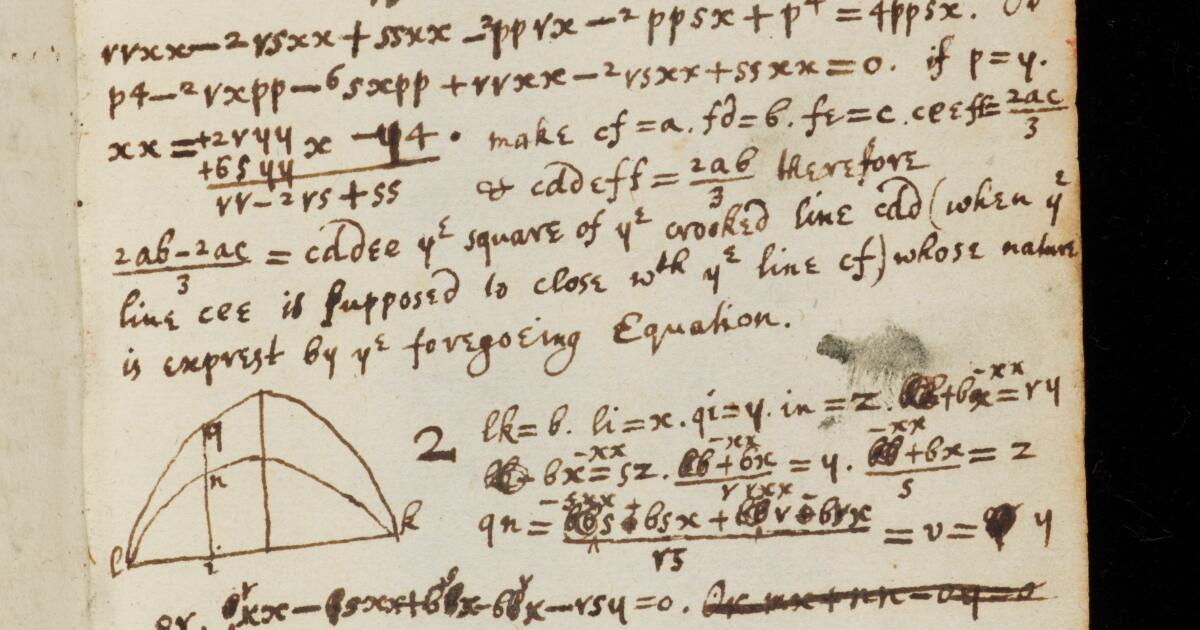 rrxx−2rsxx+ssxx−2pprx−2ppsx+p4=4ppsx. Or
p4−2rxpp−6sxpp+rrxx−2rsxx+ssxx=0. if p=y.
xx = +2ryy +6syy x −y4 . make cf=a. fd=b. fe=c. ceef=2ac/3
rr−2rs+ss & cddeff=2ab/3 therefore
2ab−2ac/3 = cddee yͤ square of yͤ crooked line cdd (when yͤ
line cee is supposed to close wth yͤ line cf) whose nature
is exprest by yͤ foregoeing Equation.
2 lk=b. li=x. qi=y. in=z. +bx−xx=ry
bx−xx=sz. +bx−xx/r=y. +bx−xx/s=z
qn= bsx + brx / rs = v = y
q
n
l
i
k
or. −rsy=0.